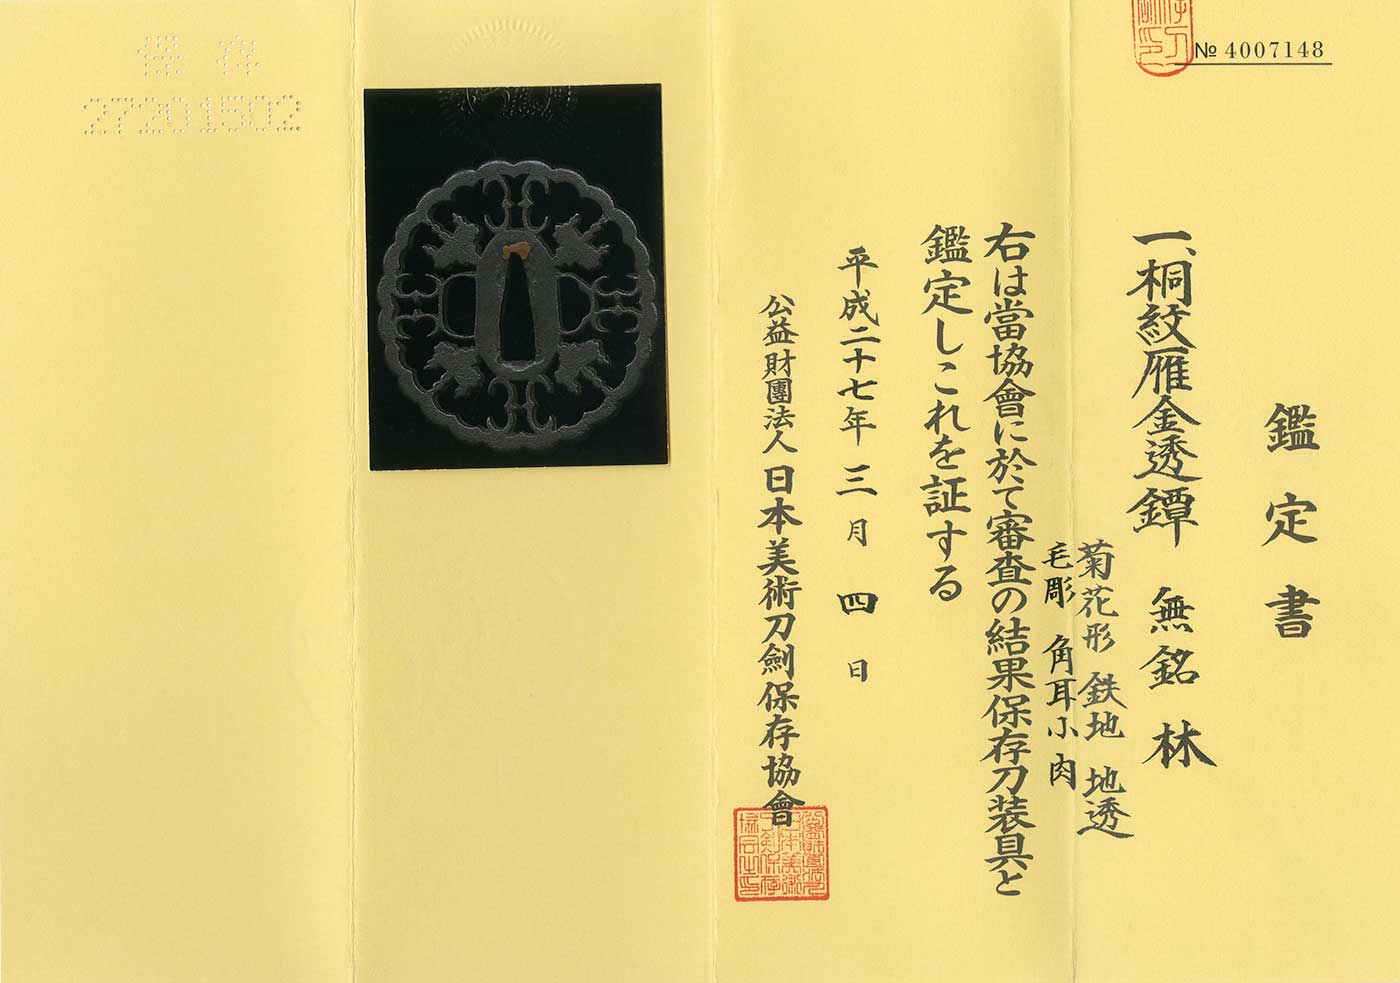 № 4007148
鑑定書
一、桐紋雁金透鐔 無銘 林
菊花形 鉄地 地透
毛彫 角耳小肉
右は當協會に於て審査の結果保存刀装具と
鑑定しこれを証する
平成二十七年三月四日
公益財團法人日本美術刀劍保存協會
保存
27201502